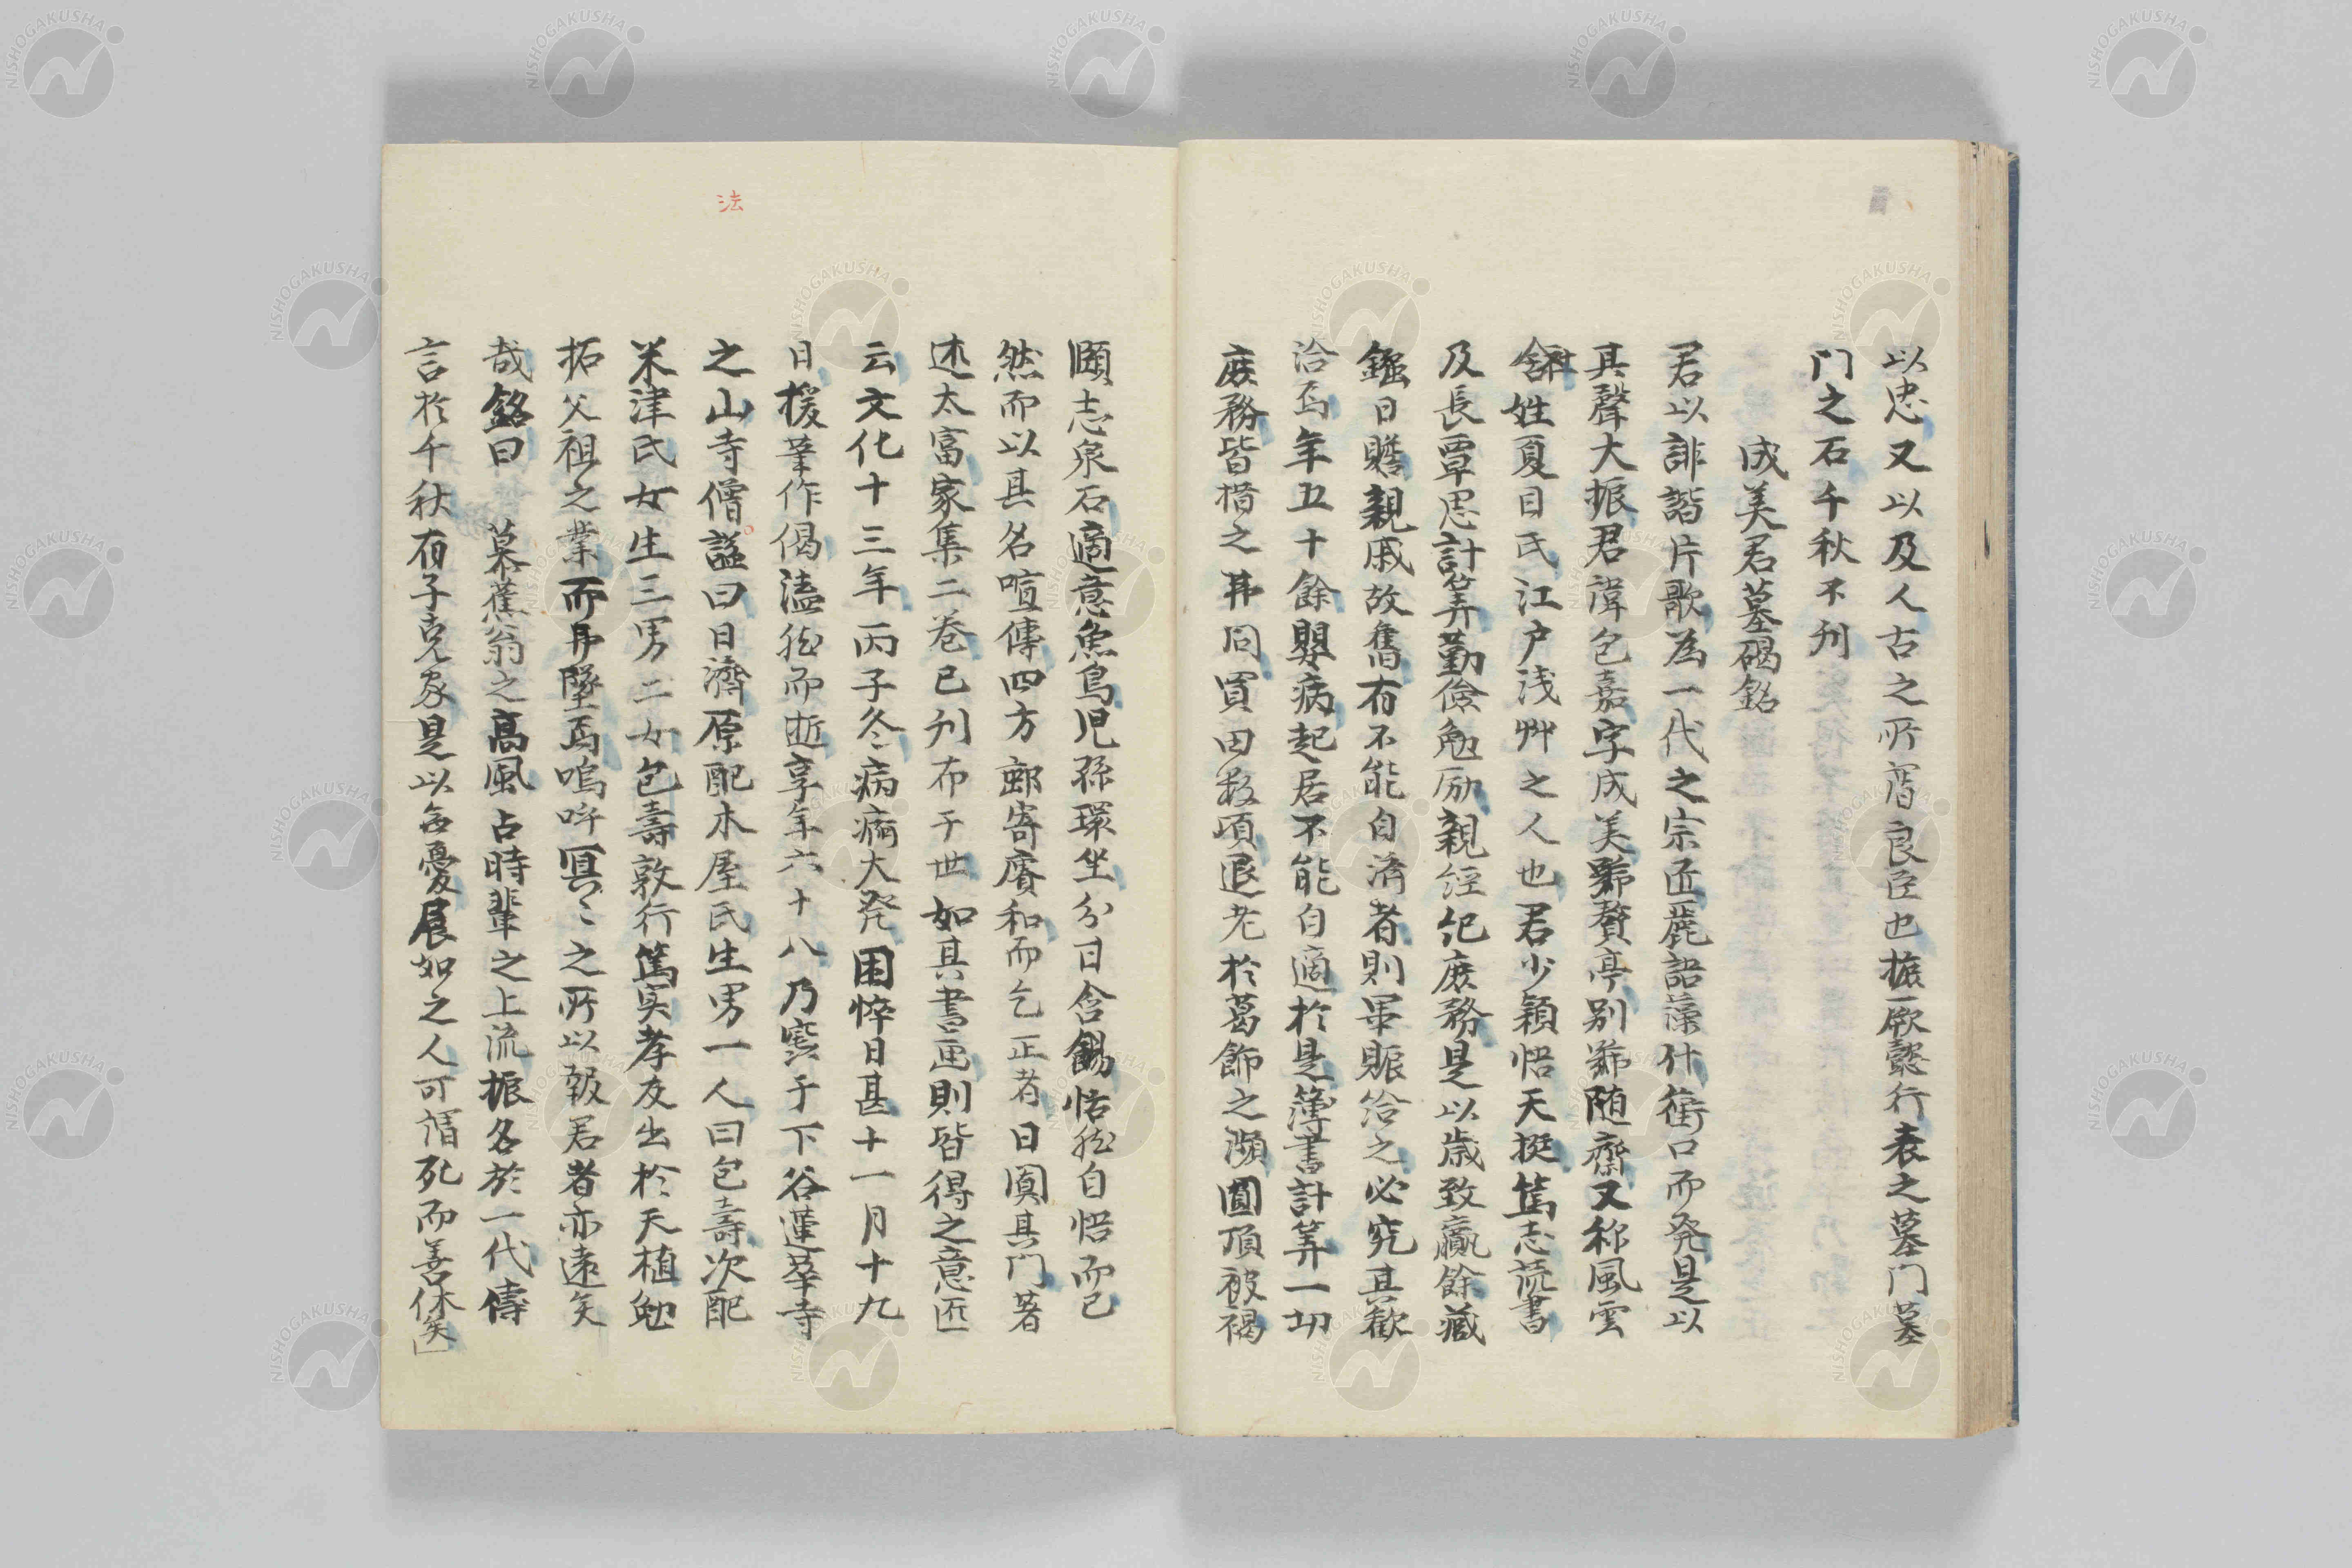 以忠又以及人古之所謂良臣也摭厥懿行表之墓门墓
门之石千秋不刋
成美君墓碣銘
君以誹諧片歌為一代之宗匠麗語藻什衝口而発是以
其聲大振君諱包嘉字成美號贅亭别號随齋又称風雲
舎姓夏目氏江户浅艸之人也君少穎悟天挺篤志読書
及長覃思計筭勤儉勉励親經紀庶務是以歳致贏餘藏
鏹日贍親戚故舊有不能自済者則畀賑給之必究其歓
洽焉年五十餘嬰病起居不能自適於是簿書計筭一切
庶務皆措之弗问買田数頃退老於葛飾之瀕圓頂被褐
頤志泉石適意魚鳥児孫環坐分甘含餳恬然自怡而已
然而以其名喧傳四方郵寄賡和而乞正者日闐其门著
述太富家集二巻已刋布于世如其書画則皆得之意匠
云文化十三年丙子冬病痾大発困悴日甚十一月十九
日援筆作偈溘然而逝享年六十八乃窆于下谷蓮華寺
之山寺僧諡曰日濟原配木屋氏生男一人曰包壽次配
米津氏女生三男二女包壽敦行篤実孝友出於天植勉
拓父祖之業而弗墜焉嗚呼冥〻之所以報君者亦遠矣
哉銘曰 慕蕉翁之高風占時輩之上流振名於一代傳
言於千秋有子克家是以每憂展如之人可謂死而善休矣」
法